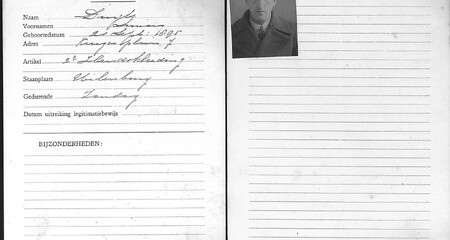 Naam
Voornamen Simon
Geboortedatum 21 Sept: 1895
Adres Krugerplein 7
Artikel 2e Handskleeding
Staanplaats Uilenburg
Gedurende Zondag
Datum uitreiking legitimatiebewijs
BIJZONDERHEDEN: